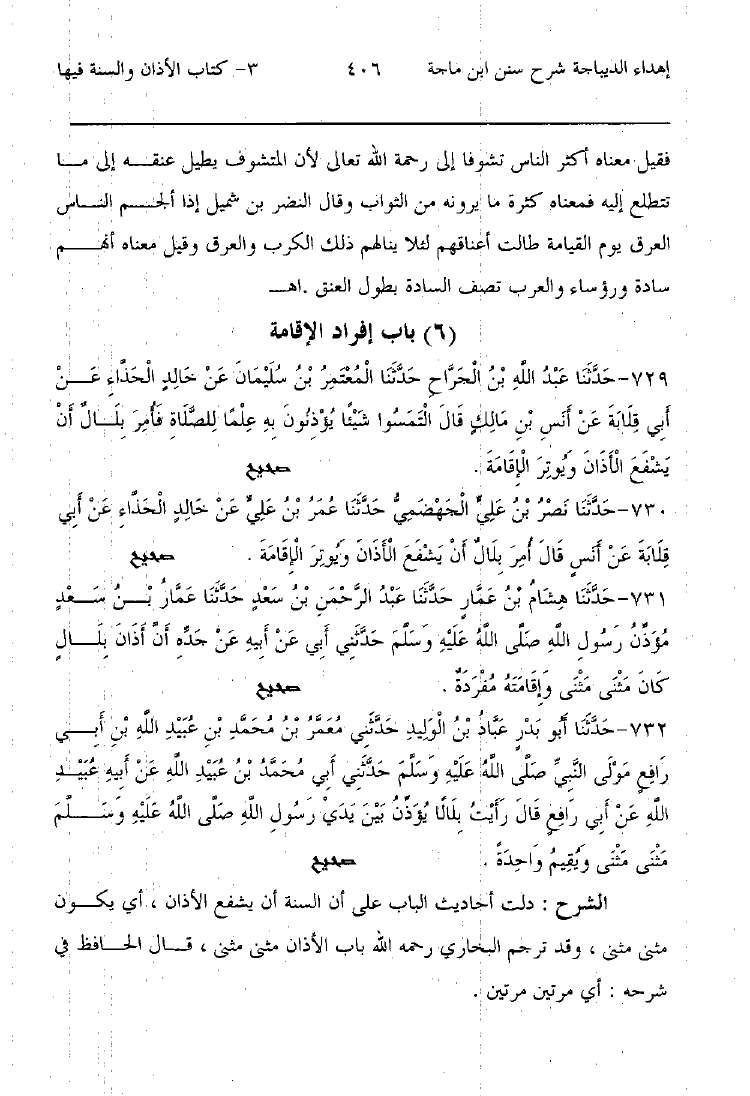 إهداء الديباجة شرح سنن ابن ماجة ٤٠٦ ٣- كتاب الأذان والسنة فيها
فقيل معناه أكثر الناس تشوفا إلى رحمة الله تعالى لأن المتشوف يطيل عنقه إلى ما
تتطلع إليه فمعناه كثرة ما يرونه من الثواب وقال النضر بن شميل إذا ألجم الناس
العرق يوم القيامة طالت أعناقهم لئلا ينالهم ذلك الكرب والعرق وقيل معناه أنهم
سادة ورؤساء والعرب تصف السادة بطول العنق .اهـ
(٦) باب إفراد الإقامة
٧٢٩-حَدَّثَنَا عَبْدُ اللَّهِ بْنُ الْجَرَّاحِ حَدَّثَنَا الْمُعْتَمِرُ بْنُ سُلَيْمَانَ عَنْ خَالِدٍ الْحَذَّاءِ عَنْ
أَبِي قِلَابَةَ عَنْ أَنَسِ بْنِ مَالِكٍ قَالَ الْتَمَسُوا شَيْئًا يُؤْذِنُونَ بِهِ عِلْمًا لِلصَّلَاةِ فَأُمِرَ بِلَالٌ أَنْ
يَشْفَعَ الْأَذَانَ وَيُوتِرَ الْإِقَامَةَ . صحيح
٧٣٠-حَدَّثَنَا نَصْرُ بْنُ عَلِيٍّ الْجَهْضَمِيُّ حَدَّثَنَا عُمَرُ بْنُ عَلِيٍّ عَنْ خَالِدٍ الْحَذَّاءِ عَنْ أَبِي
قِلَابَةَ عَنْ أَنَسٍ قَالَ أُمِرَ بِلَالٌ أَنْ يَشْفَعَ الْأَذَانَ وَيُوتِرَ الْإِقَامَةَ . صحيح
٧٣١-حَدَّثَنَا هِشَامُ بْنُ عَمَّارٍ حَدَّثَنَا عَبْدُ الرَّحْمَنِ بْنُ سَعْدٍ حَدَّثَنَا عَمَّارُ بْنُ سَعْدٍ
مُؤَذِّنُ رَسُولِ اللَّهِ صَلَّى اللَّهُ عَلَيْهِ وَسَلَّمَ حَدَّثَنِي أَبِي عَنْ أَبِيهِ عَنْ جَدِّهِ أَنَّ أَذَانَ بِلَالٍ
كَانَ مَثْنَى مَثْنَى وَإِقَامَتَهُ مُفْرَدَةٌ . صحيح
٧٣٢-حَدَّثَنَا أَبُو بَدْرٍ عَبَّادُ بْنُ الْوَلِيدِ حَدَّثَنِي مُعَمَّرُ بْنُ مُحَمَّدِ بْنِ عُبَيْدِ اللَّهِ بْنِ أَبِي
رَافِعٍ مَوْلَى النَّبِيِّ صَلَّى اللَّهُ عَلَيْهِ وَسَلَّمَ حَدَّثَنِي أَبِي مُحَمَّدُ بْنُ عُبَيْدِ اللَّهِ عَنْ أَبِيهِ عُبَيْدِ
اللَّهِ عَنْ أَبِي رَافِعٍ قَالَ رَأَيْتُ بِلَالًا يُؤَذِّنُ بَيْنَ يَدَيْ رَسُولِ اللَّهِ صَلَّى اللَّهُ عَلَيْهِ وَسَلَّمَ
مَثْنَى مَثْنَى وَيُقِيمُ وَاحِدَةً . صحيح
الشرح : دلت أحاديث الباب على أن السنة أن يشفع الأذان ، أي يكون
مثنى مثنى ، وقد ترجم البخاري رحمه الله باب الأذان مثنى مثنى ، قال الحافظ في
شرحه : أي مرتين مرتين .